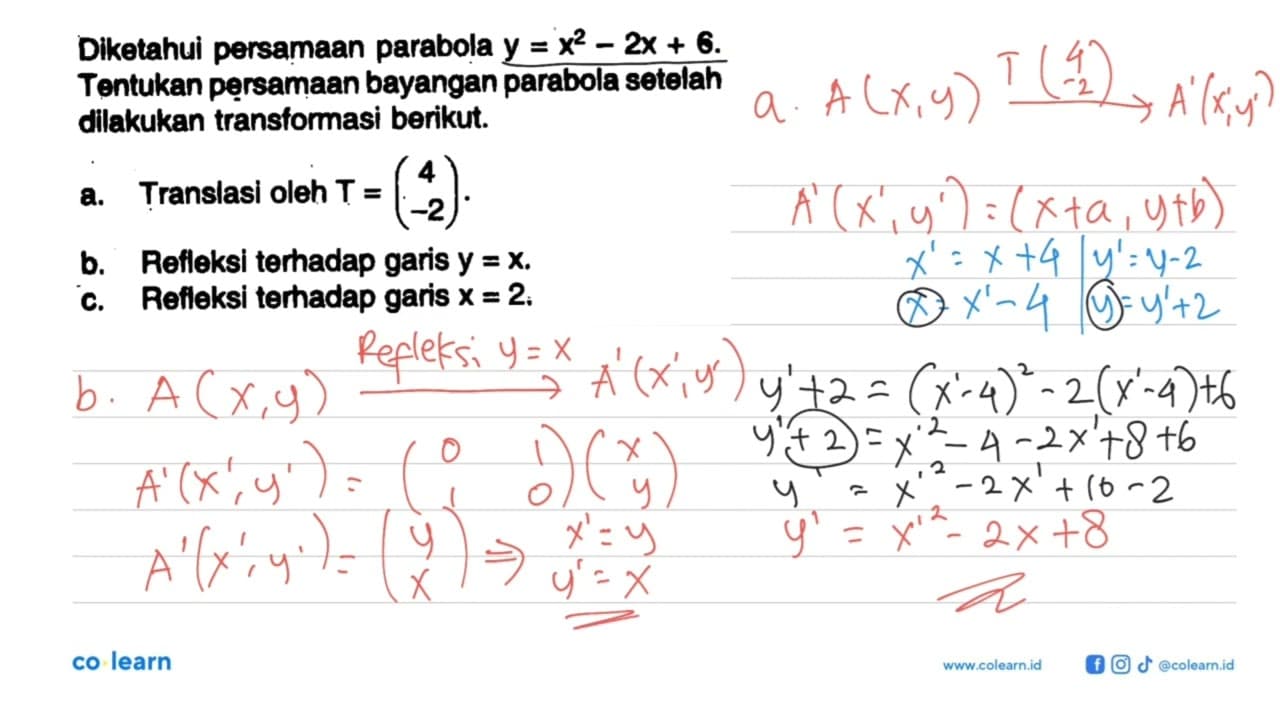 Diketahui persamaan parabola y = x² – 2x + 6.
Tentukan persamaan bayangan parabola setelah
dilakukan transformasi berikut.
a. Translasi oleh T = (4 –2).
b. Refleksi terhadap garis y = x.
c. Refleksi terhadap garis x = 2.
a. A(x,y) T(4 -2) → A'(x',y')
A'(x',y') = (x+a, y+b)
x' = x+4 | y' = y-2
x = x'-4 | y = y'+2
y'+2 = (x'-4)² - 2(x'-4)+6
y'+2 = x'² - 4 - 2x'+8+6
y' = x'² - 2x' + 10 - 2
y' = x'² - 2x + 8
b. A(x,y) Refleksi y = x → A'(x',y')
A'(x',y') = (0 1 1 0)(x y)
A'(x',y') = (y x) ⇒ x' = y
y' = x
co learn
www.colearn.id @colearn.id